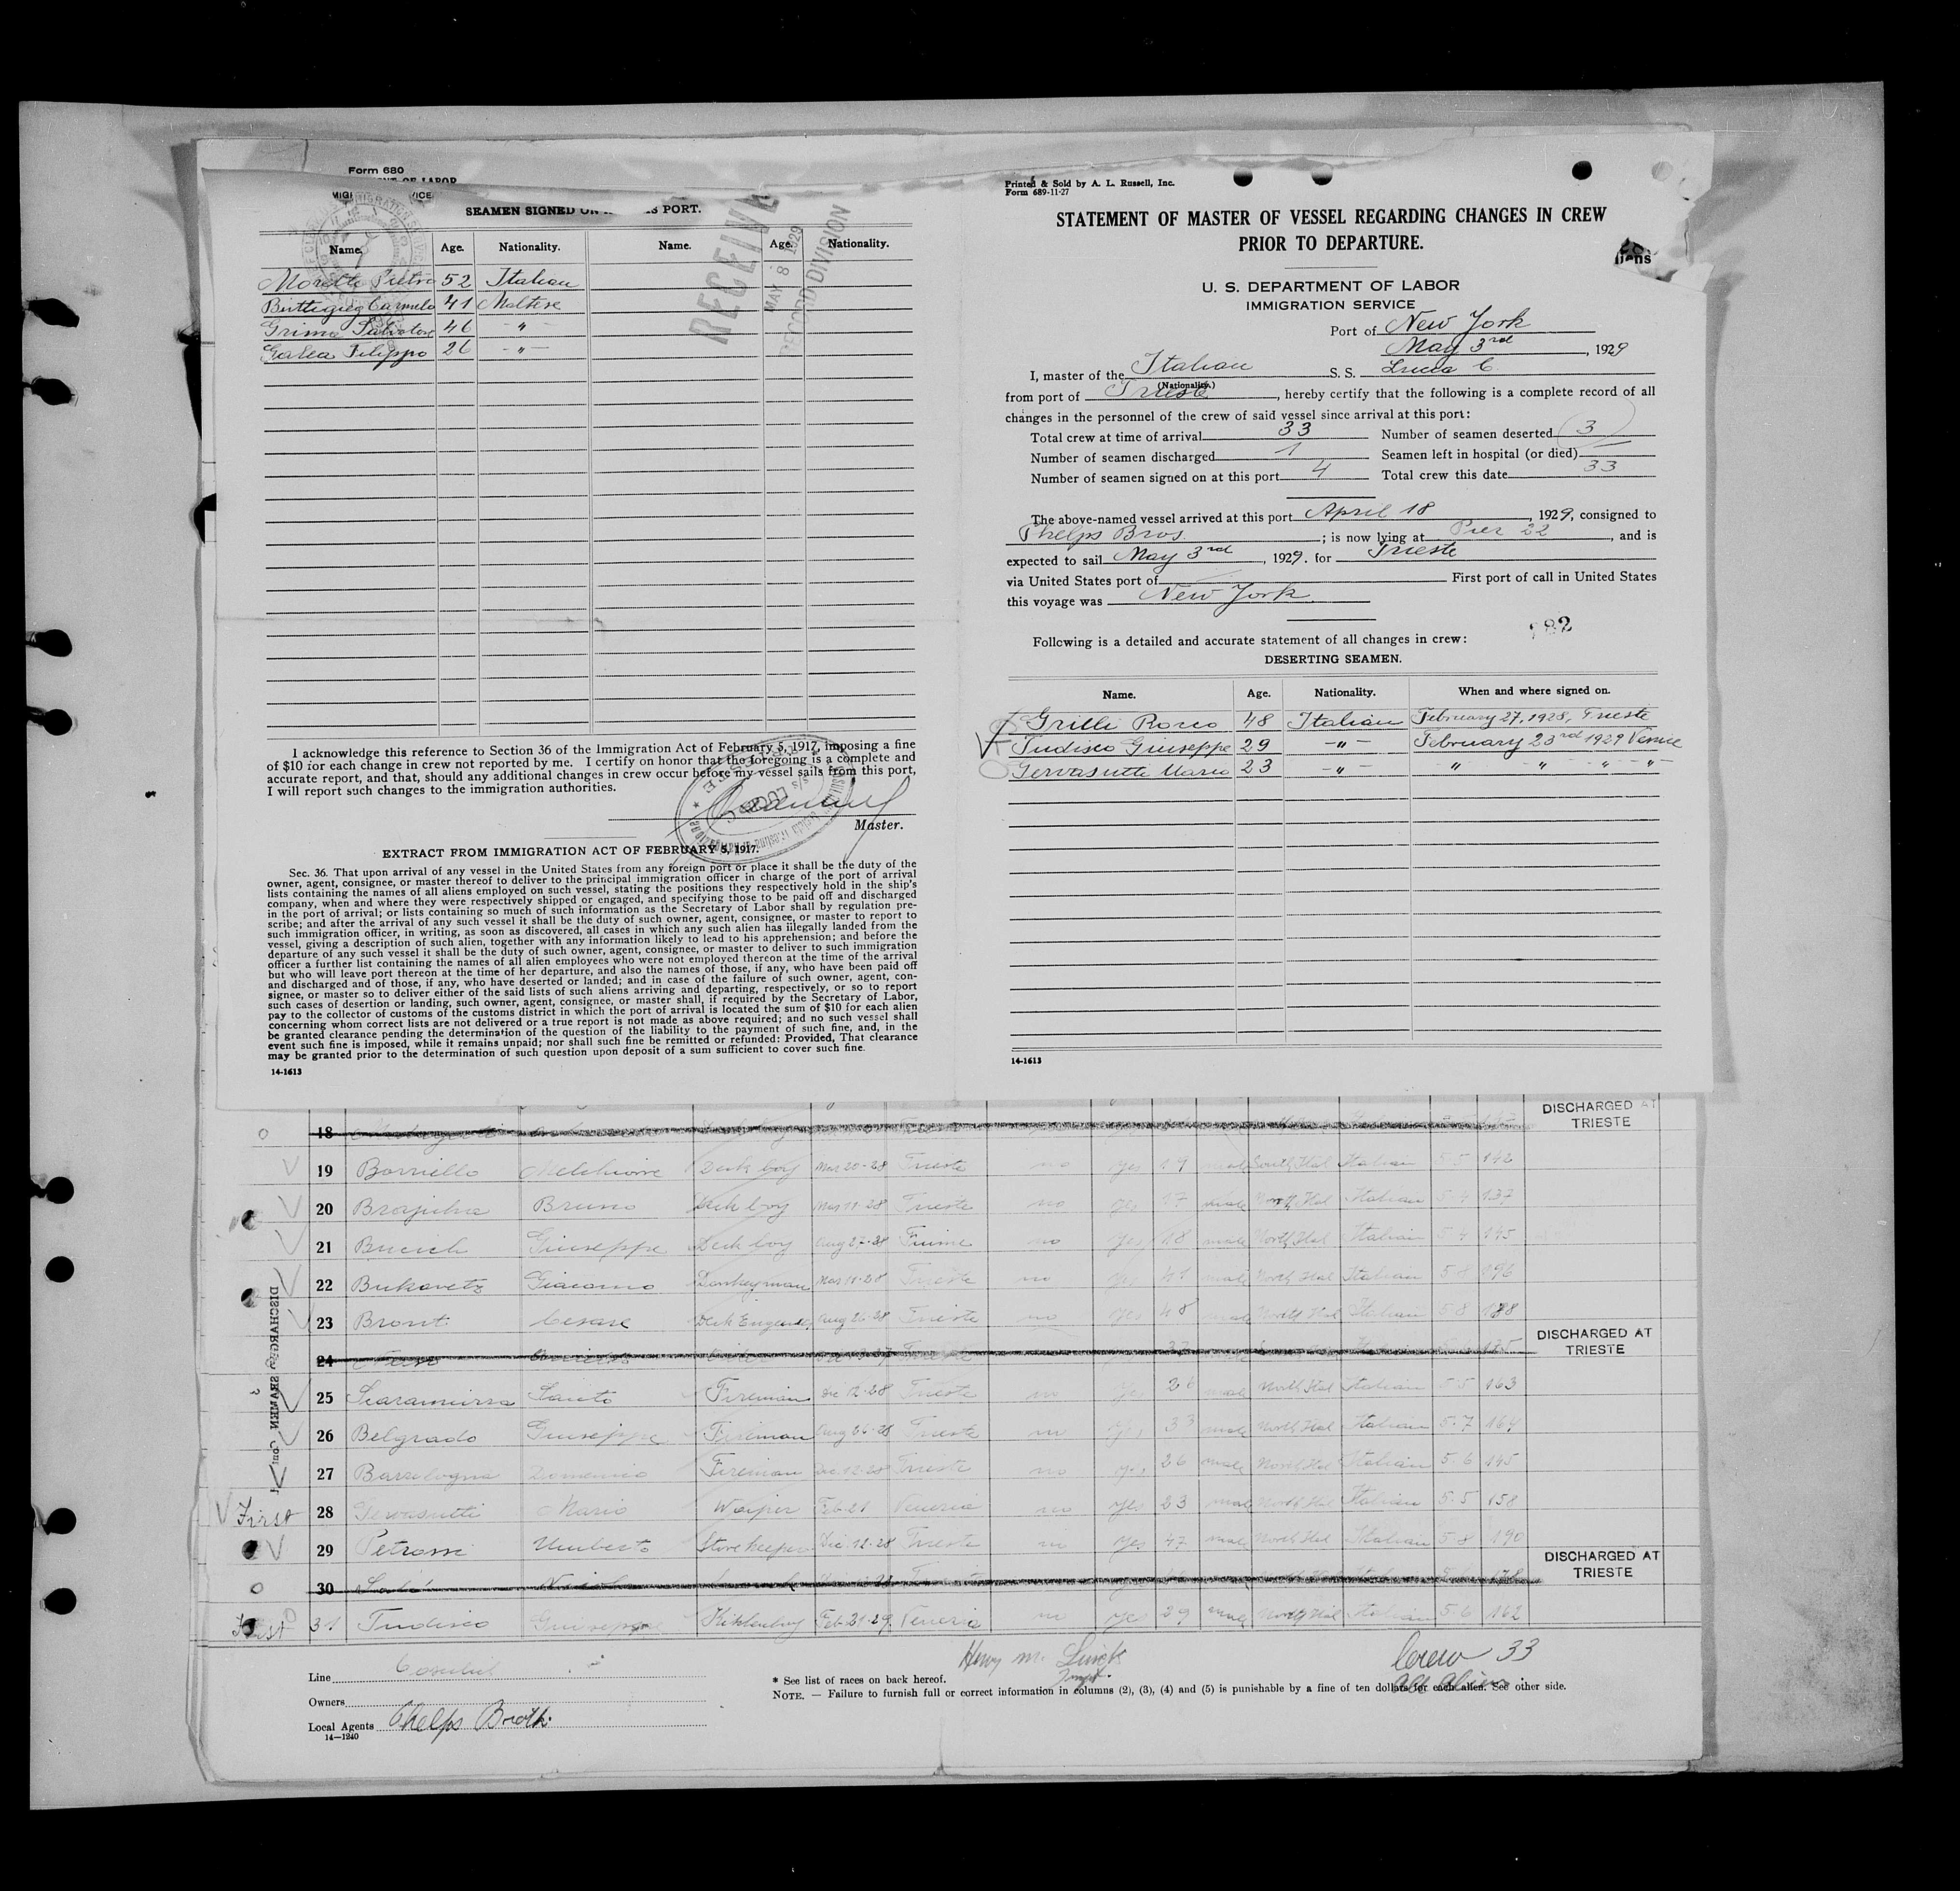 Form 680
SEAMEN SIGNED ON PORT.
Name. Age. Nationality. Name. Age. Nationality.
Moretti Pietro 52 Italian
Buttigieg Carmelo 41 Maltese
Grima Salvatore 46 -"-
Galea Filippo 26 -"-
RECEIVE
MAY 8 1929
RECORD DIVISION
I acknowledge this reference to Section 36 of the Immigration Act of February 5, 1917, imposing a fine
of $10 for each change in crew not reported by me. I certify on honor that the foregoing is a complete and
accurate report, and that, should any additional changes in crew occur before my vessel sails from this port,
I will report such changes to the immigration authorities.
Master.
EXTRACT FROM IMMIGRATION ACT OF FEBRUARY 5, 1917.
Sec. 36. That upon arrival of any vessel in the United States from any foreign port or place it shall be the duty of the
owner, agent, consignee, or master thereof to deliver to the principal immigration officer in charge of the port of arrival
lists containing the names of all aliens employed on such vessel, stating the positions they respectively hold in the ship's
company, when and where they were respectively shipped or engaged, and specifying those to be paid off and discharged
in the port of arrival; or lists containing so much of such information as the Secretary of Labor shall by regulation pre-
scribe; and after the arrival of any such vessel it shall be the duty of such owner, agent, consignee, or master to report to
such immigration officer, in writing, as soon as discovered, all cases in which any such alien has illegally landed from the
vessel, giving a description of such alien, together with any information likely to lead to his apprehension; and before the
departure of any such vessel it shall be the duty of such owner, agent, consignee, or master to deliver to such immigration
officer a further list containing the names of all alien employees who were not employed thereon at the time of the arrival
but who will leave port thereon at the time of her departure, and also the names of those, if any, who have been paid off
and discharged and of those, if any, who have deserted or landed; and in case of the failure of such owner, agent, con-
signee, or master so to deliver either of the said lists of such aliens arriving and departing, respectively, or so to report
such cases of desertion or landing, such owner, agent, consignee, or master shall, if required by the Secretary of Labor,
pay to the collector of customs of the customs district in which the port of arrival is located the sum of $10 for each alien
concerning whom correct lists are not delivered or a true report is not made as above required; and no such vessel shall
be granted clearance pending the determination of the question of the liability to the payment of such fine, and, in the
event such fine is imposed, while it remains unpaid; nor shall such fine be remitted or refunded: Provided, That clearance
may be granted prior to the determination of such question upon deposit of a sum sufficient to cover such fine.
14-1613
Printed & Sold by A. L. Russell, Inc.
Form 689-11-27
STATEMENT OF MASTER OF VESSEL REGARDING CHANGES IN CREW
PRIOR TO DEPARTURE.
U. S. DEPARTMENT OF LABOR
IMMIGRATION SERVICE
Port of New York
May 3rd, 1929
I, master of the Italian S. S. Lucia C.
(Nationality.)
from port of Trieste, hereby certify that the following is a complete record of all
changes in the personnel of the crew of said vessel since arrival at this port:
Total crew at time of arrival 33 Number of seamen deserted 3
Number of seamen discharged 1 Seamen left in hospital (or died)
Number of seamen signed on at this port 4 Total crew this date 33
The above-named vessel arrived at this port April 18, 1929, consigned to
Phelps Bros.; is now lying at Pier 22, and is
expected to sail May 3rd, 1929. for Trieste
via United States port of First port of call in United States
this voyage was New York.
82
Following is a detailed and accurate statement of all changes in crew:
DESERTING SEAMEN.
Name. Age. Nationality. When and where signed on.
Grilli Rocco 48 Italian February 27, 1928, Trieste
Tudisco Giuseppe 29 -"- February 23rd 1929 Venice
Gervasutti Mario 23 -"- " " " "
14-1613
18 DISCHARGED AT TRIESTE
19 Borriello Melchiorre Deck boy Mar 20-28 Trieste no yes 19 male South Ital Italian 5-5 142
20 Bruno Deck boy Mar 11-28 Trieste no yes 17 male North Ital Italian 5-4 137
21 Bucich Giuseppe Deck boy Aug 27-28 Fiume no yes 18 male North Ital Italian 5-4 145
22 Bukovetz Giacomo Donkeyman Mar 11-28 Trieste no yes 41 male North Ital Italian 5-8 196
23 Bront Cesare Deck Aug 26-28 Trieste no yes 48 male North Ital Italian 5-8 188
24 DISCHARGED AT TRIESTE
25 Scaramuzza Santo Fireman Dic 12-28 Trieste no yes 26 male North Ital Italian 5-5 163
26 Belgrado Giuseppe Fireman Aug 26-28 Trieste no yes 33 male North Ital Italian 5-7 164
27 Domenico Fireman Dic. 12-28 Trieste no yes 26 male North Ital Italian 5-6 145
First 28 Gervasutti Mario Waiper Feb-21 Venezia no yes 23 male North Ital Italian 5-5 158
29 Umberto Storekeeper Dic. 12-28 Trieste no yes 47 male North Ital Italian 5-8 190
30 DISCHARGED AT TRIESTE
First 31 Tudisco Giuseppe Feb-21-29. Venezia no yes 29 male North Ital Italian 5-6 162
DISCHARGED SEAMEN
Line Cosulich
Owners
Local Agents Phelps Broth.
14—1240
* See list of races on back hereof.
NOTE. — Failure to furnish full or correct information in columns (2), (3), (4) and (5) is punishable by a fine of ten dollars for each alien. See other side.
Crew 33
all aliens